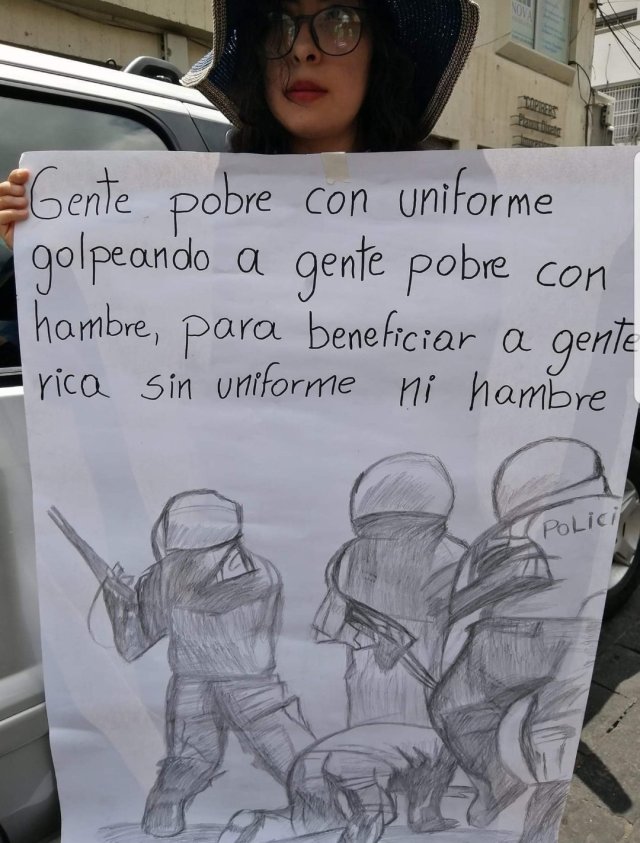 Gente pobre con uniforme
golpeando a gente pobre con
hambre, para beneficiar a gente
rica sin uniforme ni hambre
POLICI